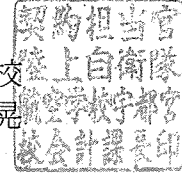 契約担当官
陸上自衛隊
航空学校宇都宮
校会計課長印
交
晃